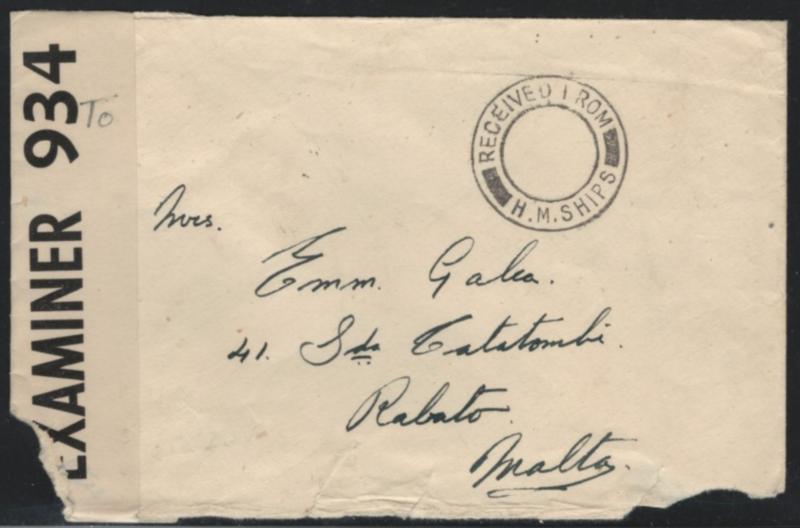 EXAMINER 934
To
RECEIVED FROM
H.M. SHIPS
Mrs.
Emm. Galea.
41. Sda Catatombi.
Rabato
Malta.